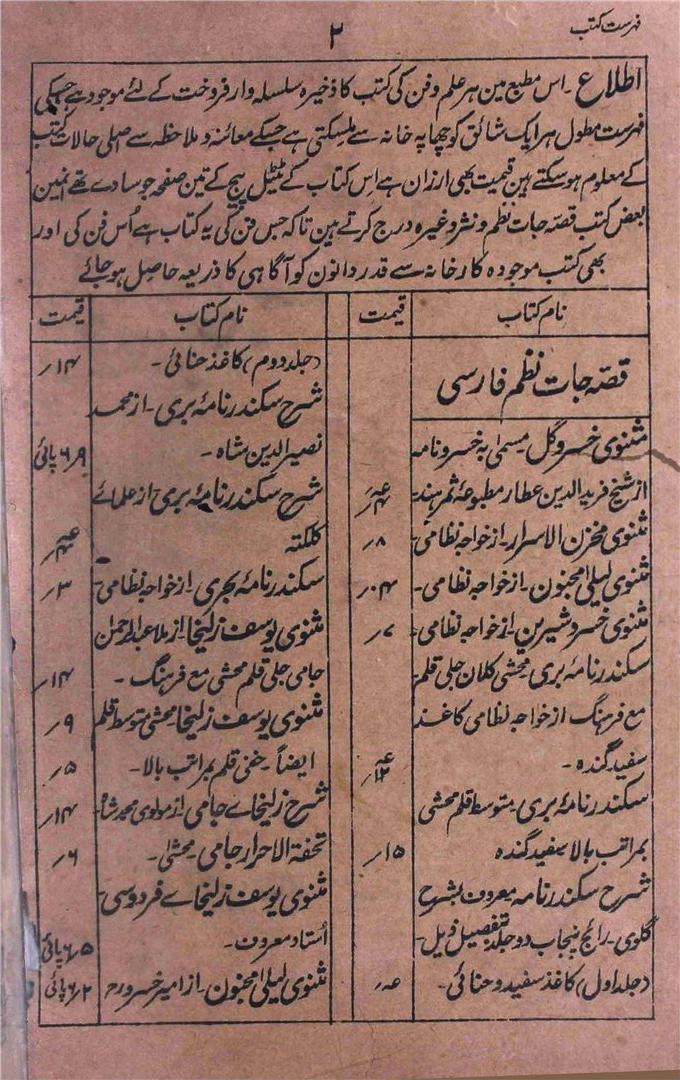 فہرست کتب
۲
اطلاع ۔ اس مطبع مین ہر علم و فن کی کتب کا ذخیرہ سلسلہ وار فروخت کے لئے موجود ہے جسکی
فہرست مطول ہر ایک شائق کو چھاپہ خانہ سے ملسکتی ہے جسکے معائنہ و ملاحظہ سے اصلی حالات کتب
کے معلوم ہو سکتے ہین قیمت بھی ارزان ہے اِس کتاب کے ٹیٹل پیج کے تین صفحہ جو سادے تھے انمین
بعض کتب قصّہ جات نظم و نثر وغیرہ درج کرتے ہین تاکہ جس فن کی یہ کتاب ہے اُس فن کی اور
بھی کتب موجودہ کارخانہ سے قدر دانون کو آگاہی کا ذریعہ حاصل ہو جائے
نام کتاب قیمت
قصّہ جات نظم فارسی
مثنوی خسرو گل ۔ مسمیٰ بہ خسرونامہ
از شیخ فرید الدین عطار مطبوعۂ ثمر ہند
مثنوی مخزن الاسرار ۔ از خواجہ نظامی ۔ ۸؍
مثنوی لیلیٰ مجنون ۔ از خواجہ نظامی ۔
مثنوی خسرو شیرین ۔ از خواجہ نظامی ۔ ۷؍
سکندر نامۂ بری ۔ محشی کلان جلی قلم
مع فرہنگ از خواجہ نظامی کاغذ
سفید گندہ ۔
سکندر نامۂ بری ۔ متوسط قلم محشی
بمراتب بالا سفید گندہ ۱۵؍
شرح سکندر نامہ معروف بشرح
گلوی ۔ رائج پنجاب دو جلد بتفصیل ذیل ۔
(جلد اول) کاغذ سفید و حنائی ۔
نام کتاب قیمت
(جلد دوم) کاغذ حنائی ۔ ۱۴؍
شرح سکندر نامۂ بری ۔ از محمد
نصیر الدین شاہ ۔ ۹؍۶ پائی
شرح سکندر نامۂ بری از علمائے
کلکتہ
سکندر نامۂ بحری ۔ از خواجہ نظامی ۔ ۳؍
مثنوی یوسف زلیخا از ملا عبد الرحمن
جامی جلی قلم محشی مع فرہنگ ۔ ۱۴؍
مثنوی یوسف زلیخا محشی متوسط قلم ۹؍
ایضاً ۔ خفی قلم بمراتب بالا ۔ ۵؍
شرح زلیخاے جامی از مولوی محمد شاہ ۔ ۱۴؍
تحفۃ الاحرار جامی ۔ محشیٰ ۔ ۶؍
مثنوی یوسف زلیخاے فردوسی ۔
اُستاد معروف ۔ ۵؍۶ پائی
مثنوی لیلیٰ مجنون ۔ از امیر خسرو رح ۲؍۶ پائی